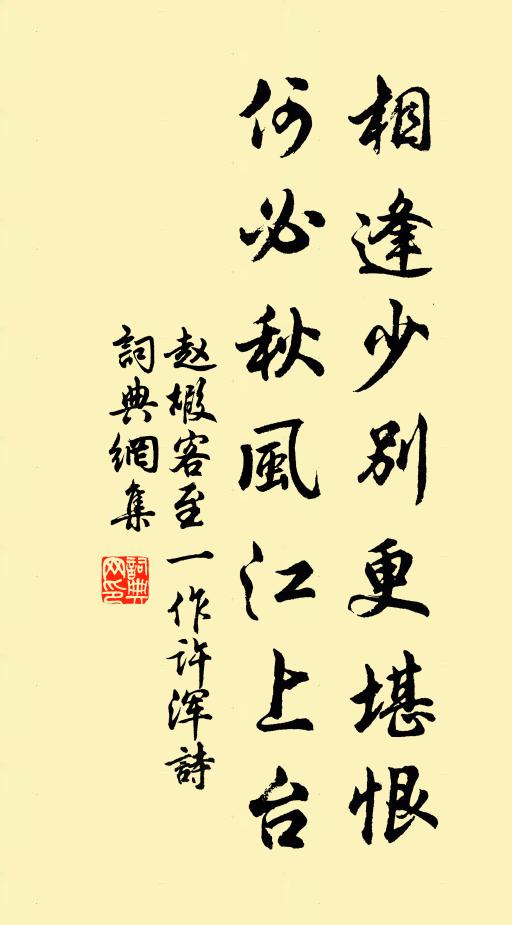 相逢少别更堪恨
何必秋風江上台
赵嘏客至一作许浑詩
詞典網集
詞典网印